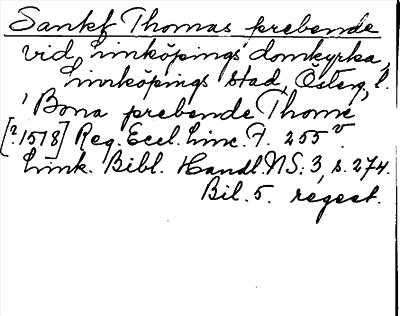 Sankt Thomas prebende
vid Linköpings domkyrka,
Linköpings stad, Österg. l.
'Bona prebende Thome
[?1578] Reg. Eccl. Linc. F. 255 v.
Link. Bibl. Handl. NS. 3, s. 274.
Bil. 5. regest.